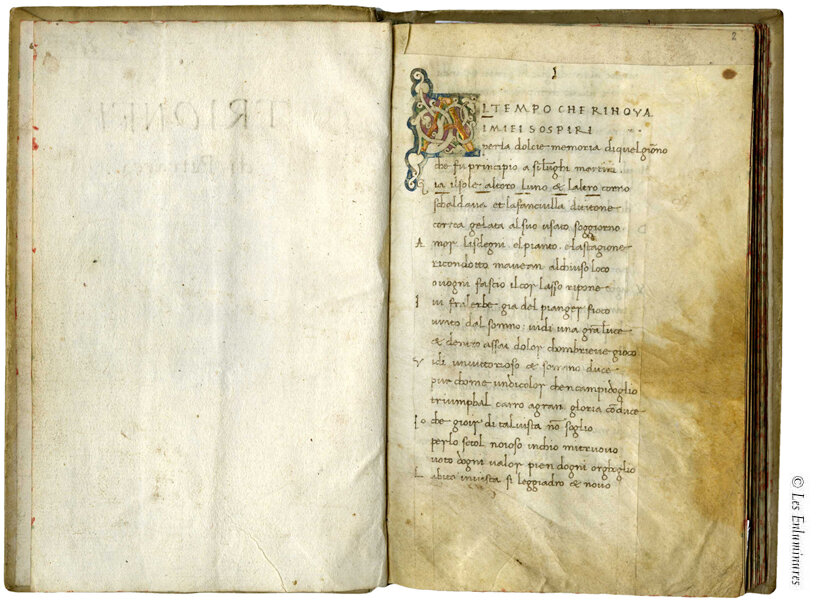 2
1
AL TEMPO CHE RINOVA
I MIEI SOSPIRI
per la dolcie memoria di quel giorno
che fu principio a si lunghi martiri
Gia il sole al toro luno & laltro corno
schaldava et la fanciulla di titone
correa gelata al suo usato soggiorno
Amor li sdegni el pianto e la stagione
ricondotto mavean al chiuso loco
ovogni fascio il cor lasso ripone
Ivi fralerbe gia del pianger fioco
vinto dal somno: vidi una gran luce
& dentro assai dolor chom brieve gioco
Vidi un vittorioso & sommo duce
pur chome un di color chen campidoglio
triumphal carro a gran gloria cõduce
Io che gioir di tal vista nõ soglio
per lo secol noioso inchio mi truovo
voto dogni valor pien dogni orgoglio
Labito in vista si leggiadro & novo
© Les Enluminures